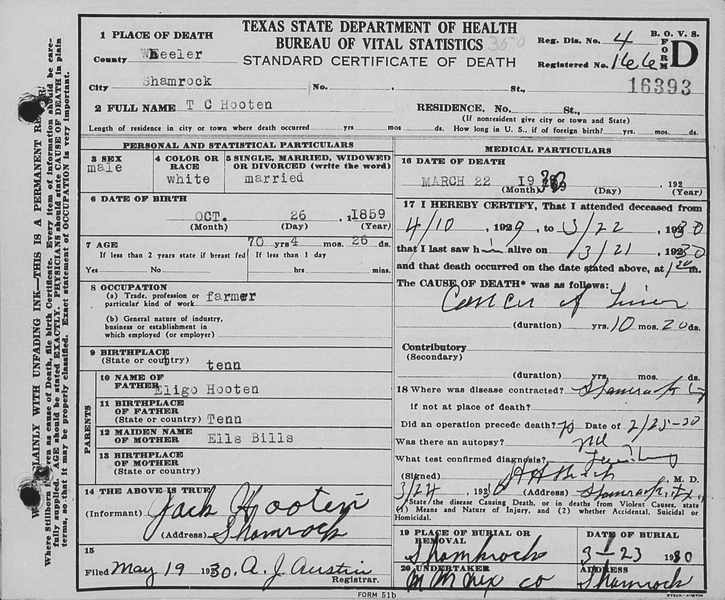 TEXAS STATE DEPARTMENT OF HEALTH
BUREAU OF VITAL STATISTICS 350
STANDARD CERTIFICATE OF DEATH
B. O. V. S.
FORM D
Reg. Dis. No. 4
Registered No. 1666
16393
1 PLACE OF DEATH
County Wheeler
City Shamrock No. St.,
2 FULL NAME T C Hooten RESIDENCE. No. St.,
(If nonresident give city or town and State)
Length of residence in city or town where death occurred yrs mos. ds. How long in U. S., if of foreign birth? yrs. mos. ds.
PERSONAL AND STATISTICAL PARTICULARS
3 SEX
male
4 COLOR OR RACE
white
5 SINGLE, MARRIED, WIDOWED OR DIVORCED (write the word)
married
6 DATE OF BIRTH
OCT. 26 , 1859
(Month) (Day) (Year)
7 AGE 70 yrs 4 mos. 26 ds.
If less than 2 years state if breast fed If less than 1 day
Yes No hrs. min.
8 OCCUPATION
(a) Trade, profession or particular kind of work. farmer
(b) General nature of industry, business or establishment in which employed (or employer)
9 BIRTHPLACE
(State or country) tenn
PARENTS
10 NAME OF FATHER Eligo Hooten
11 BIRTHPLACE OF FATHER
(State or country) Tenn
12 MAIDEN NAME OF MOTHER Ells Bills
13 BIRTHPLACE OF MOTHER
(State or country)
14 THE ABOVE IS TRUE
(Informant) Jack Hooten
(Address) Shamrock
15
Filed May 19 1930. A. J. Austin
Registrar.
MEDICAL PARTICULARS
16 DATE OF DEATH
MARCH 22 19 , 192
(Month) (Day) (Year)
17 I HEREBY CERTIFY, That I attended deceased from
4/10 , 1929 to 3/22 , 1930
that I last saw him alive on 3/21 , 1930
and that death occurred on the date stated above, at m.
The CAUSE OF DEATH* was as follows:
Cancer of Liver
(duration) yrs. 10 mos. 20 ds.
Contributory
(Secondary)
(duration) yrs. mos. ds.
18 Where was disease contracted? Shamrock
if not at place of death?
Did an operation precede death? no Date of 2/25-30
Was there an autopsy?
What test confirmed diagnosis?
(Signed) M. D.
3/24 , 1930 (Address) Shamrock, Tex.
*State the disease Causing Death, or in deaths from Violent Causes, state (1) Means and Nature of Injury, and (2) whether Accidental, Suicidal or Homicidal.
19 PLACE OF BURIAL OR REMOVAL
Shamrock
DATE OF BURIAL
3 - 23 1930
20 UNDERTAKER
co
ADDRESS
Shamrock
FORM 51b
PLAINLY WITH UNFADING INK—THIS IS A PERMANENT RECORD
Where Stillborn is given as cause of Death, file birth Certificate. Every item of information should be carefully supplied. AGE should be stated EXACTLY. PHYSICIANS should state CAUSE OF DEATH in plain terms, so that it may be properly classified. Exact statement of OCCUPATION is very important.